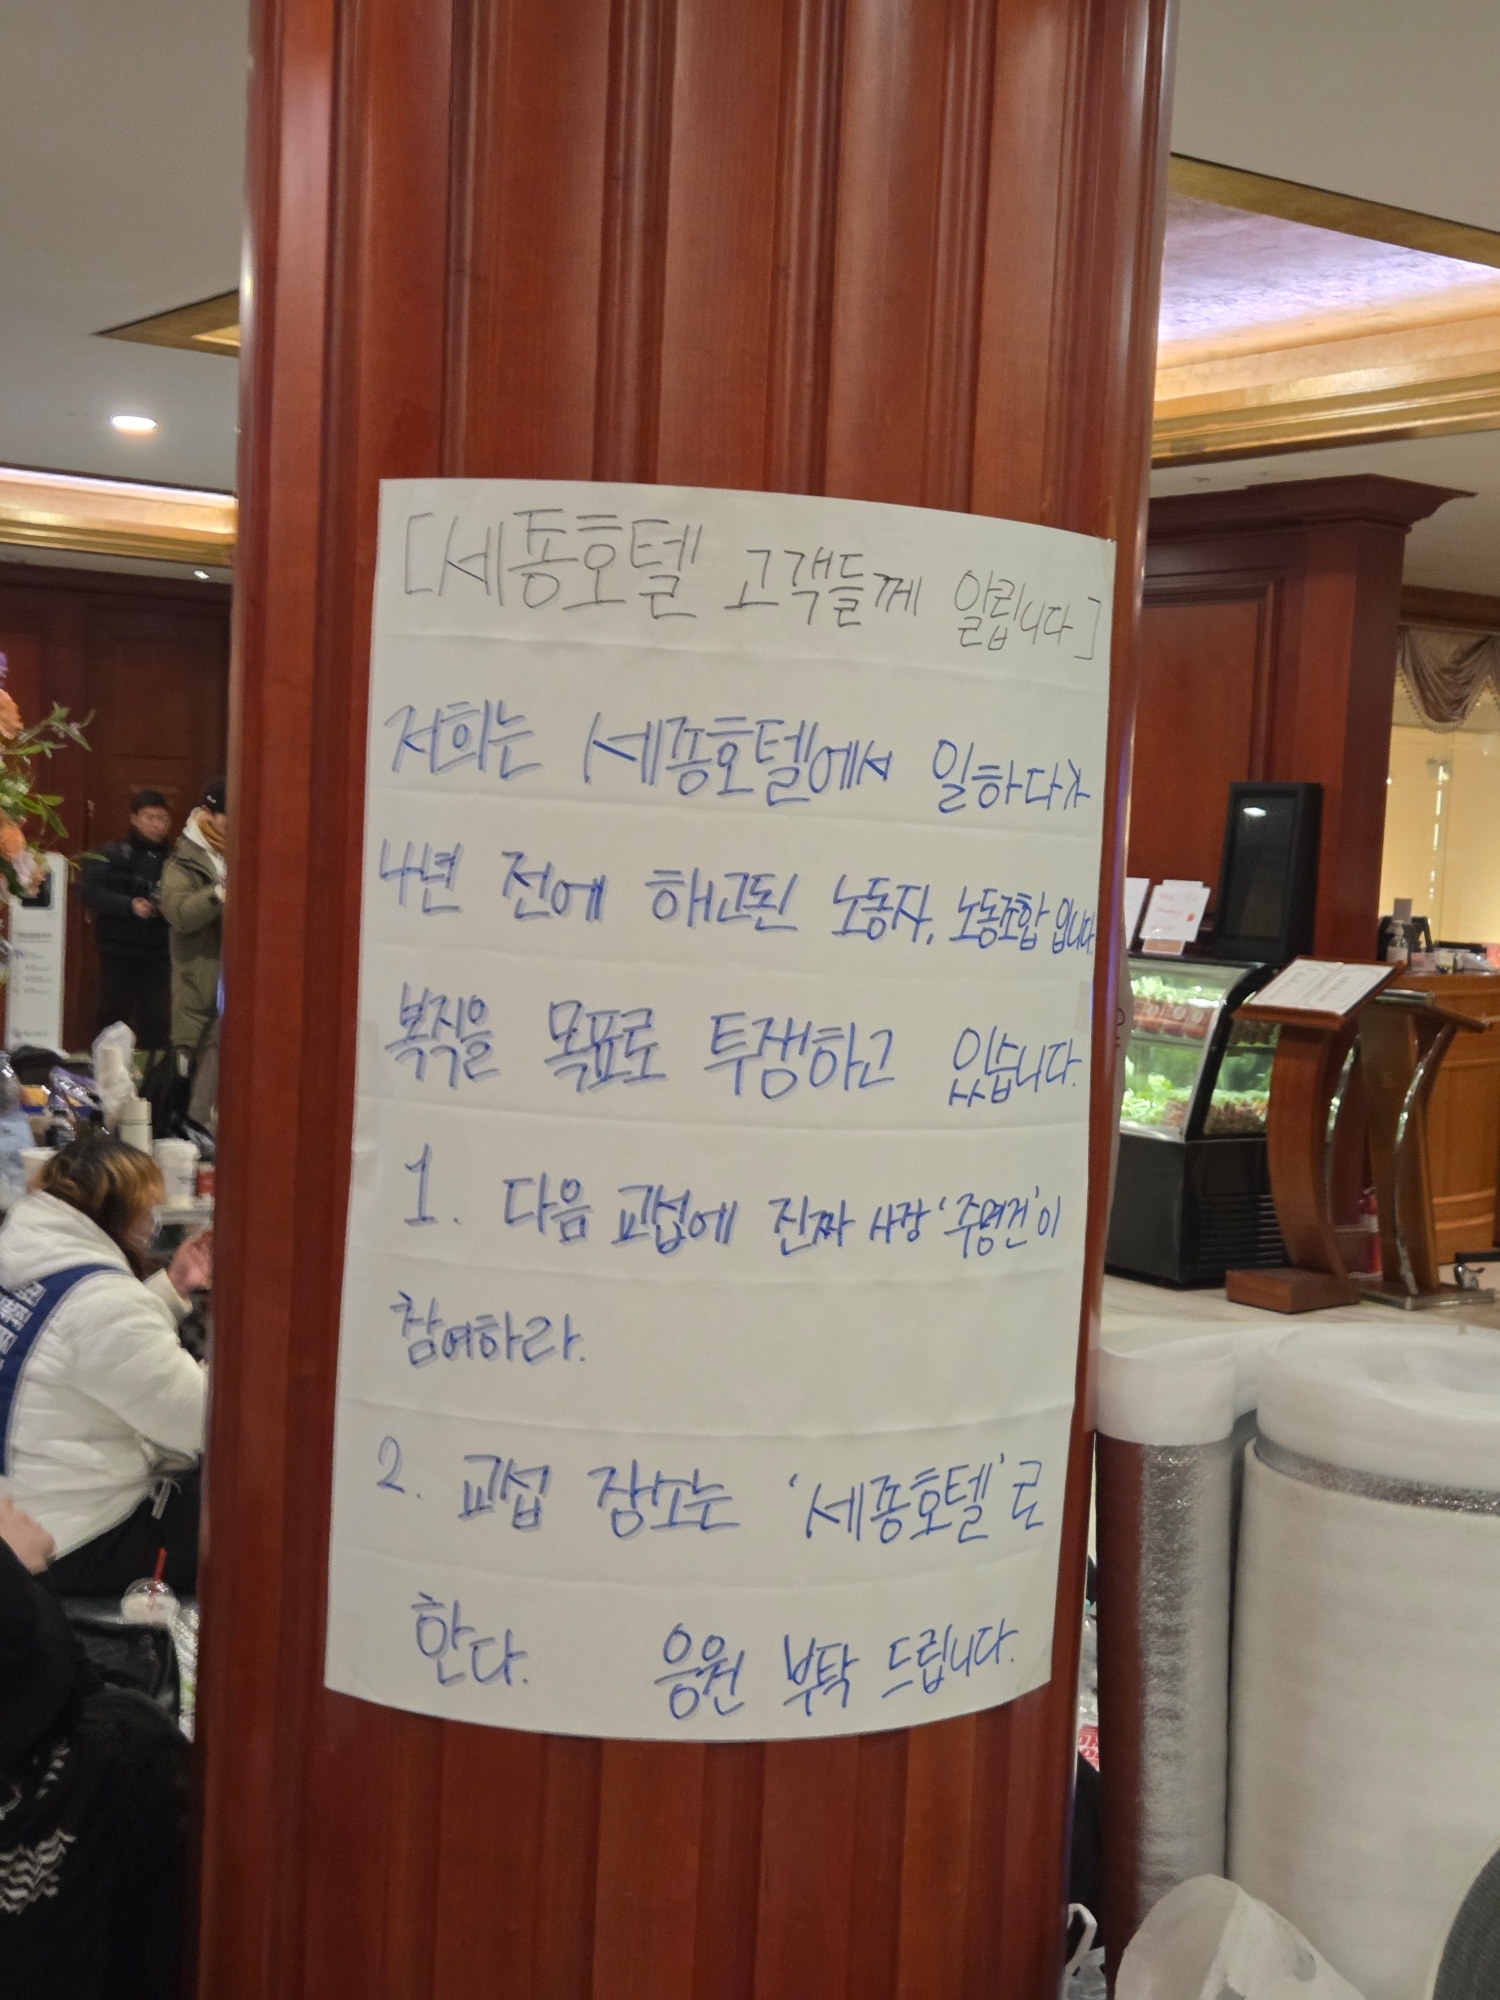 [세종호텔 고객들께 알립니다]
저희는 세종호텔에서 일하다가
4년 전에 해고된 노동자, 노동조합 입니다.
복직을 목표로 투쟁하고 있습니다.
1. 다음 교섭에 진짜 사장 '주명건'이
참여하라.
2. 교섭 장소는 '세종호텔'로
한다. 응원 부탁 드립니다.